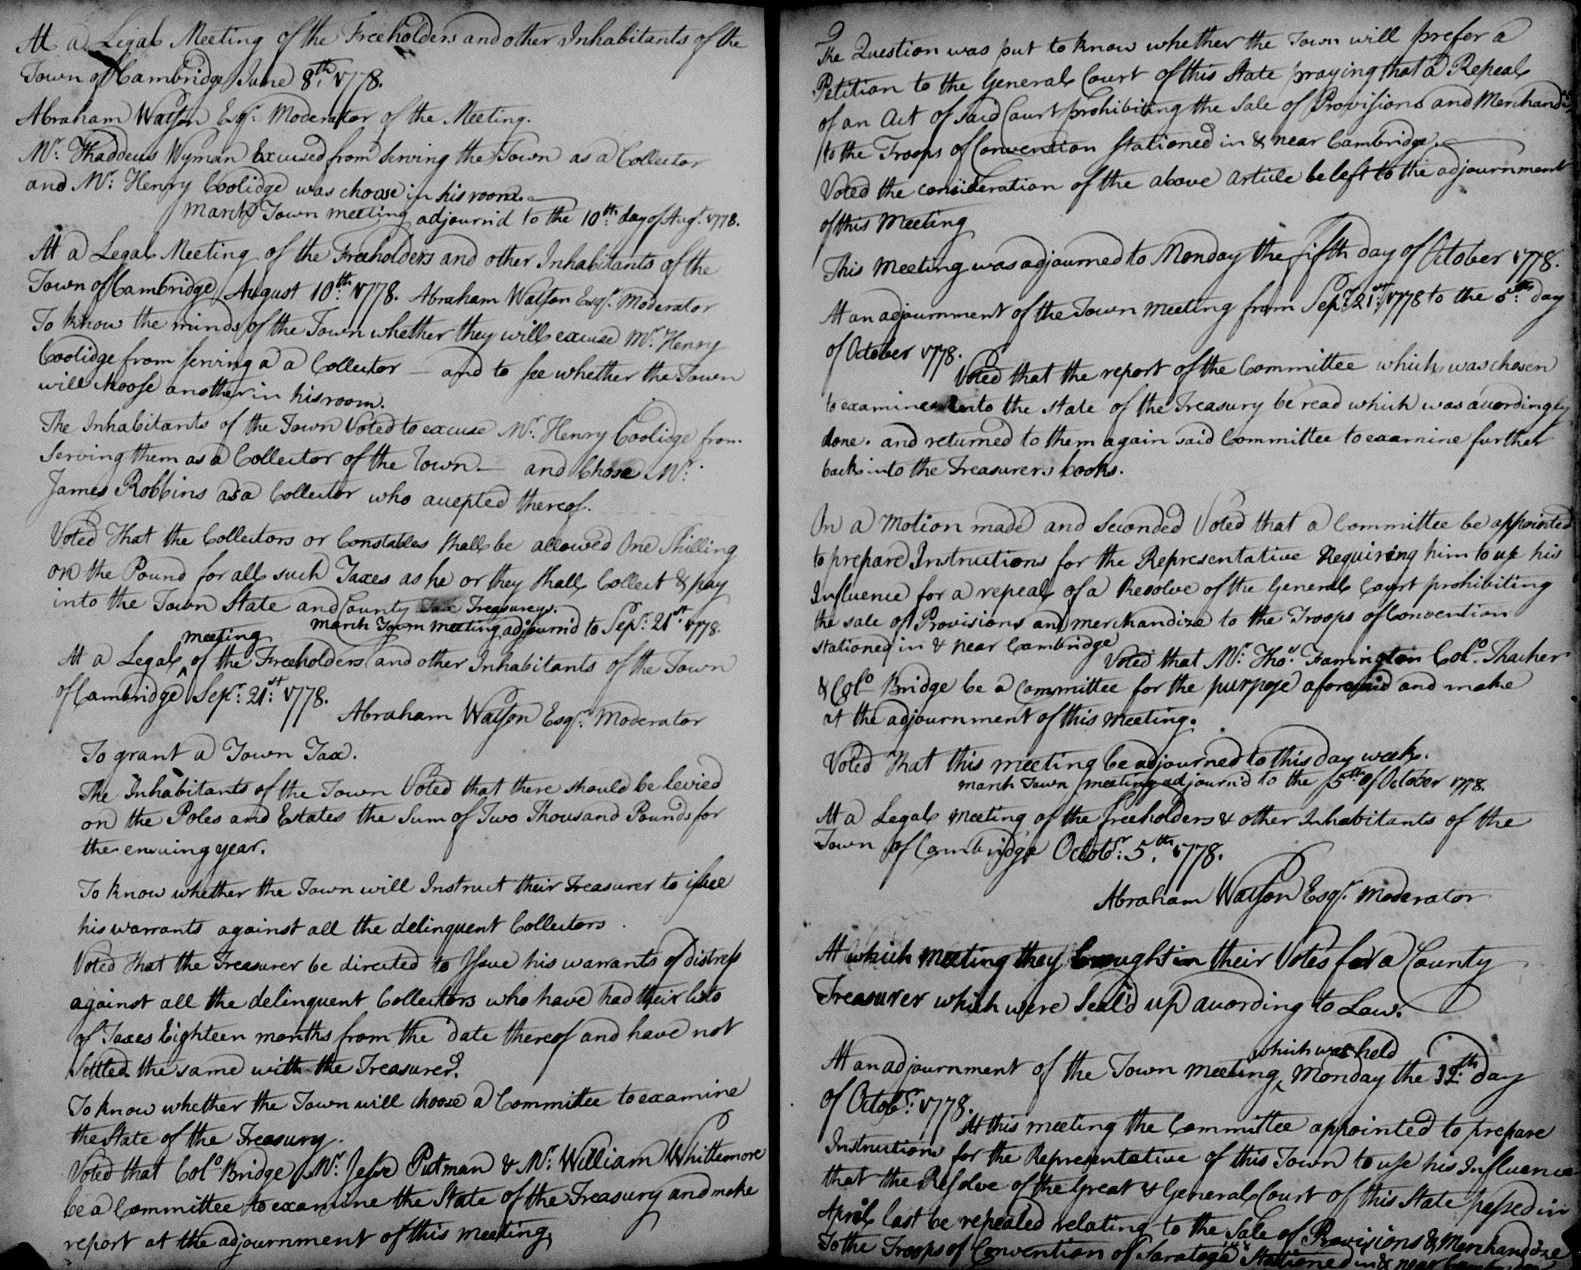 At a Legal Meeting of the Freeholders and other Inhabitants of the
Town of Cambridge June 8th. 1778.
Abraham Watson Esqr. Moderator of the Meeting.
Mr. Thaddeus Wyman Excused from serving the Town as a Collector
and Mr. Henry Coolidge was choose in his room.
March Town meeting adjourn'd to the 10th. day of Augt. 1778.
At a Legal Meeting of the Freeholders and other Inhabitants of the
Town of Cambridge August 10th. 1778. Abraham Watson Esqr. Moderator
To know the minds of the Town whether they will excuse Mr. Henry
Coolidge from serving a a Collector — and to see whether the Town
will Choose another in his room.
The Inhabitants of the Town Voted to excuse Mr. Henry Coolidge from
Serving them as a Collector of the Town — and Chose Mr.
James Robbins as a Collector who accepted thereof.
Voted That the Collectors or Constables Shall be allowed One Shilling
on the Pound for all such Taxes as he or they Shall Collect & pay
into the Town State and County Treasurys.
March Town meeting adjourn'd to Sepr. 21st. 1778.
At a Legal meeting of the Freeholders and other Inhabitants of the Town
of Cambridge Sepr. 21st. 1778.
Abraham Watson Esqr. Moderator
To grant a Town Tax.
The Inhabitants of the Town Voted that there should be levied
on the Poles and Estates the Sum of Two Thousand Pounds for
the ensuing year.
To know whether the Town will Instruct their Treasurer to issue
his warrants against all the delinquent Collectors.
Voted That the Treasurer be directed to Issue his warrants of distress
against all the delinquent Collectors who have had their lists
of Taxes Eighteen months from the date thereof and have not
Settled the same with the Treasurer.
To know whether the Town will choose a Committee to examine
the State of the Treasury.
Voted that Colo. Bridge, Mr. Jesse Putman & Mr. William Whittemore
be a Committee to examine the State of the Treasury and make
report at the adjournment of this meeting,
The Question was put to know whether the Town will prefer a
Petition to the General Court of this State praying that a Repeal
of an Act of said Court prohibiting the Sale of Provisions and Merchandize
to the Troops of Convention Stationed in & near Cambridge.
Voted the consideration of the above article be left to the adjournment
of this Meeting
This Meeting was adjourned to Monday the fifth day of October 1778.
At an adjournment of the Town Meeting from Sepr. 21st. 1778 to the 5th. day
of October 1778.
Voted that the report of the Committee which was chosen
to examine into the State of the Treasury be read which was accordingly
done. and returned to them again said Committee to examine further
back into the Treasurers books.
On a Motion made and Seconded Voted that a Committee be appointed
to prepare Instructions for the Representative Requiring him to use his
Influence for a repeal of a Resolve of the General Court prohibiting
the sale of Provisions and merchandize to the Troops of Convention
Stationed in & near Cambridge
Voted that Mr. Thos. Farrington Colo. Thacher
& Colo. Bridge be a Committee for the purpose aforesaid and make
at the adjournment of this meeting.
Voted That this meeting be adjourned to this day week.
March Town meeting adjourn'd to the 5th of October 1778.
At a Legal Meeting of the freeholders & other Inhabitants of the
Town of Cambridge Octobr. 5th. 1778.
Abraham Watson Esqr. Moderator
At which Meeting they brought in their Votes for a County
Treasurer which were Seal'd up according to Law.
At an adjournment of the Town meeting which was held Monday the 12th. day
of Octobr. 1778.
At this meeting the Committee appointed to prepare
Instructions for the Representative of this Town to use his Influence
that the Resolve of the Great & General Court of this State passed in
April last be repealed relating to the Sale of Provisions & Merchandize
To the Troops of Convention of Saratoga Stationed in & near Cambridge